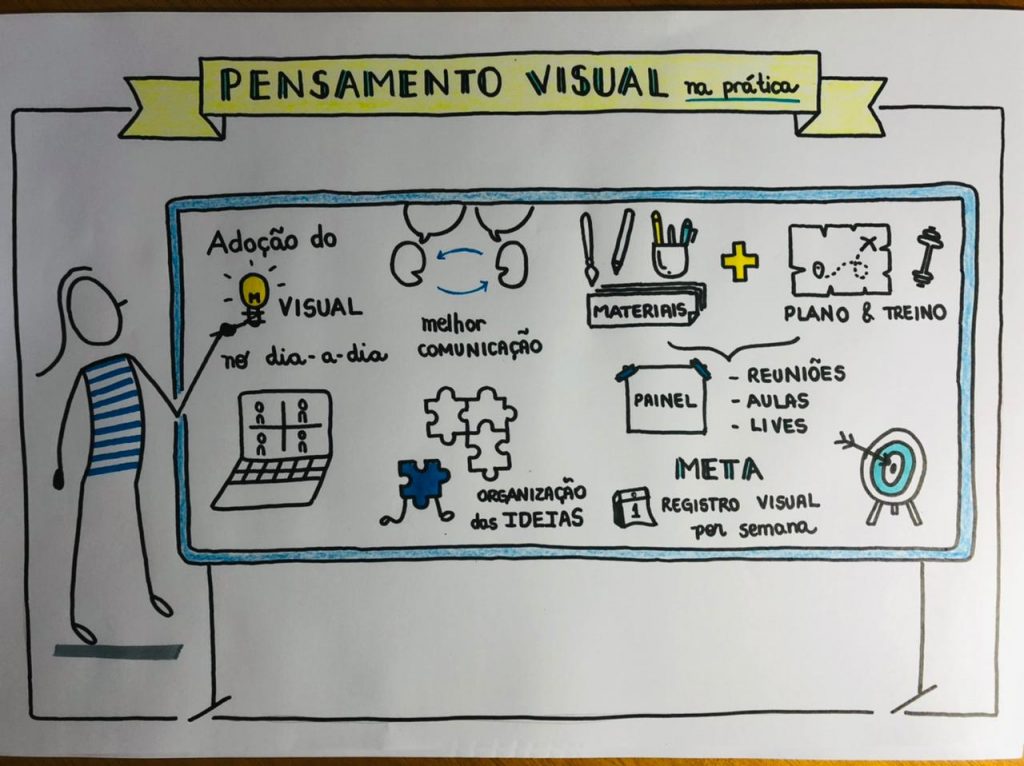 PENSAMENTO VISUAL na prática
Adoção do
VISUAL
no dia-a-dia
melhor
COMUNICAÇÃO
ORGANIZAÇÃO
das IDEIAS
MATERIAIS
PLANO & TREINO
PAINEL
- REUNIÕES
- AULAS
- LIVES
META
1 REGISTRO VISUAL
por semana